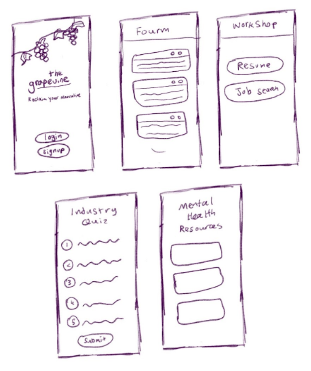 the
grapevine
Reclaim your narrative
login
signup
Fourm
Workshop
Resume
Job search
Industry
Quiz
1
2
3
4
5
Submit
Mental
Health
Resources